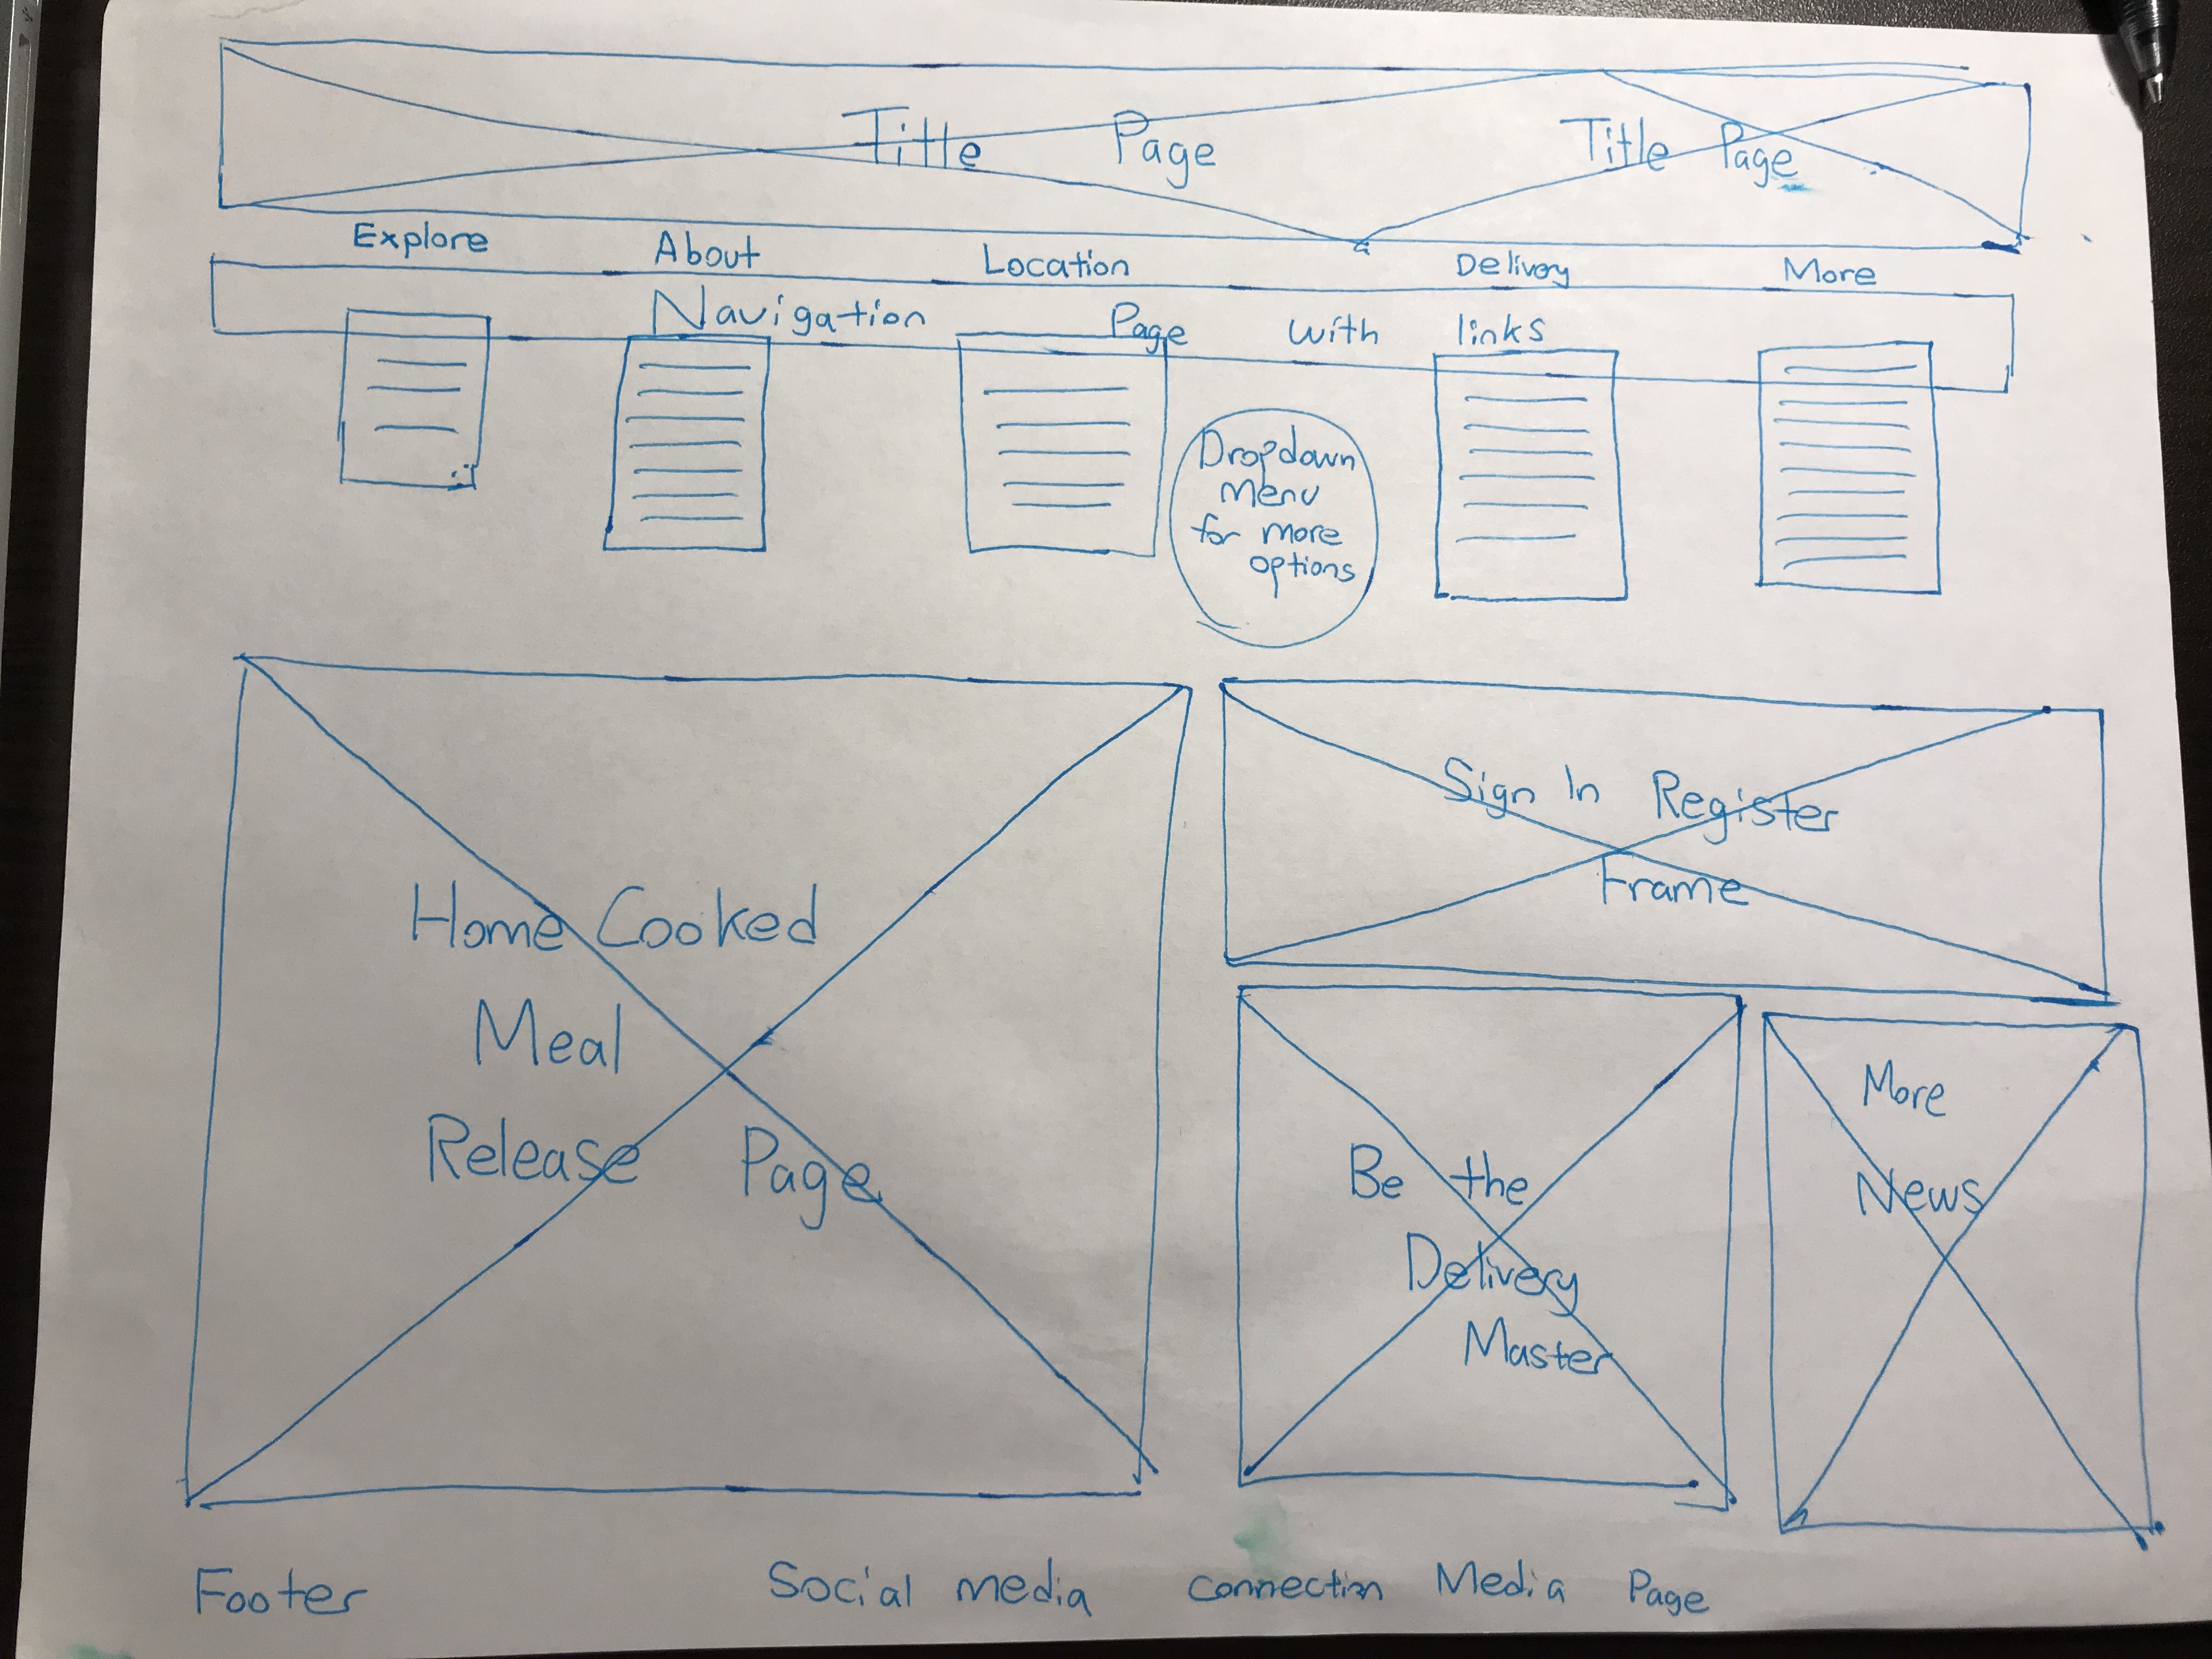 Title Page Title Page
Explore About Location Delivery More
Navigation Page with links
Dropdown
Menu
for more
options
Home Cooked
Meal
Release Page
Sign In Register
Frame
Be the
Delivery
Master
More
News
Footer Social media connection Media Page